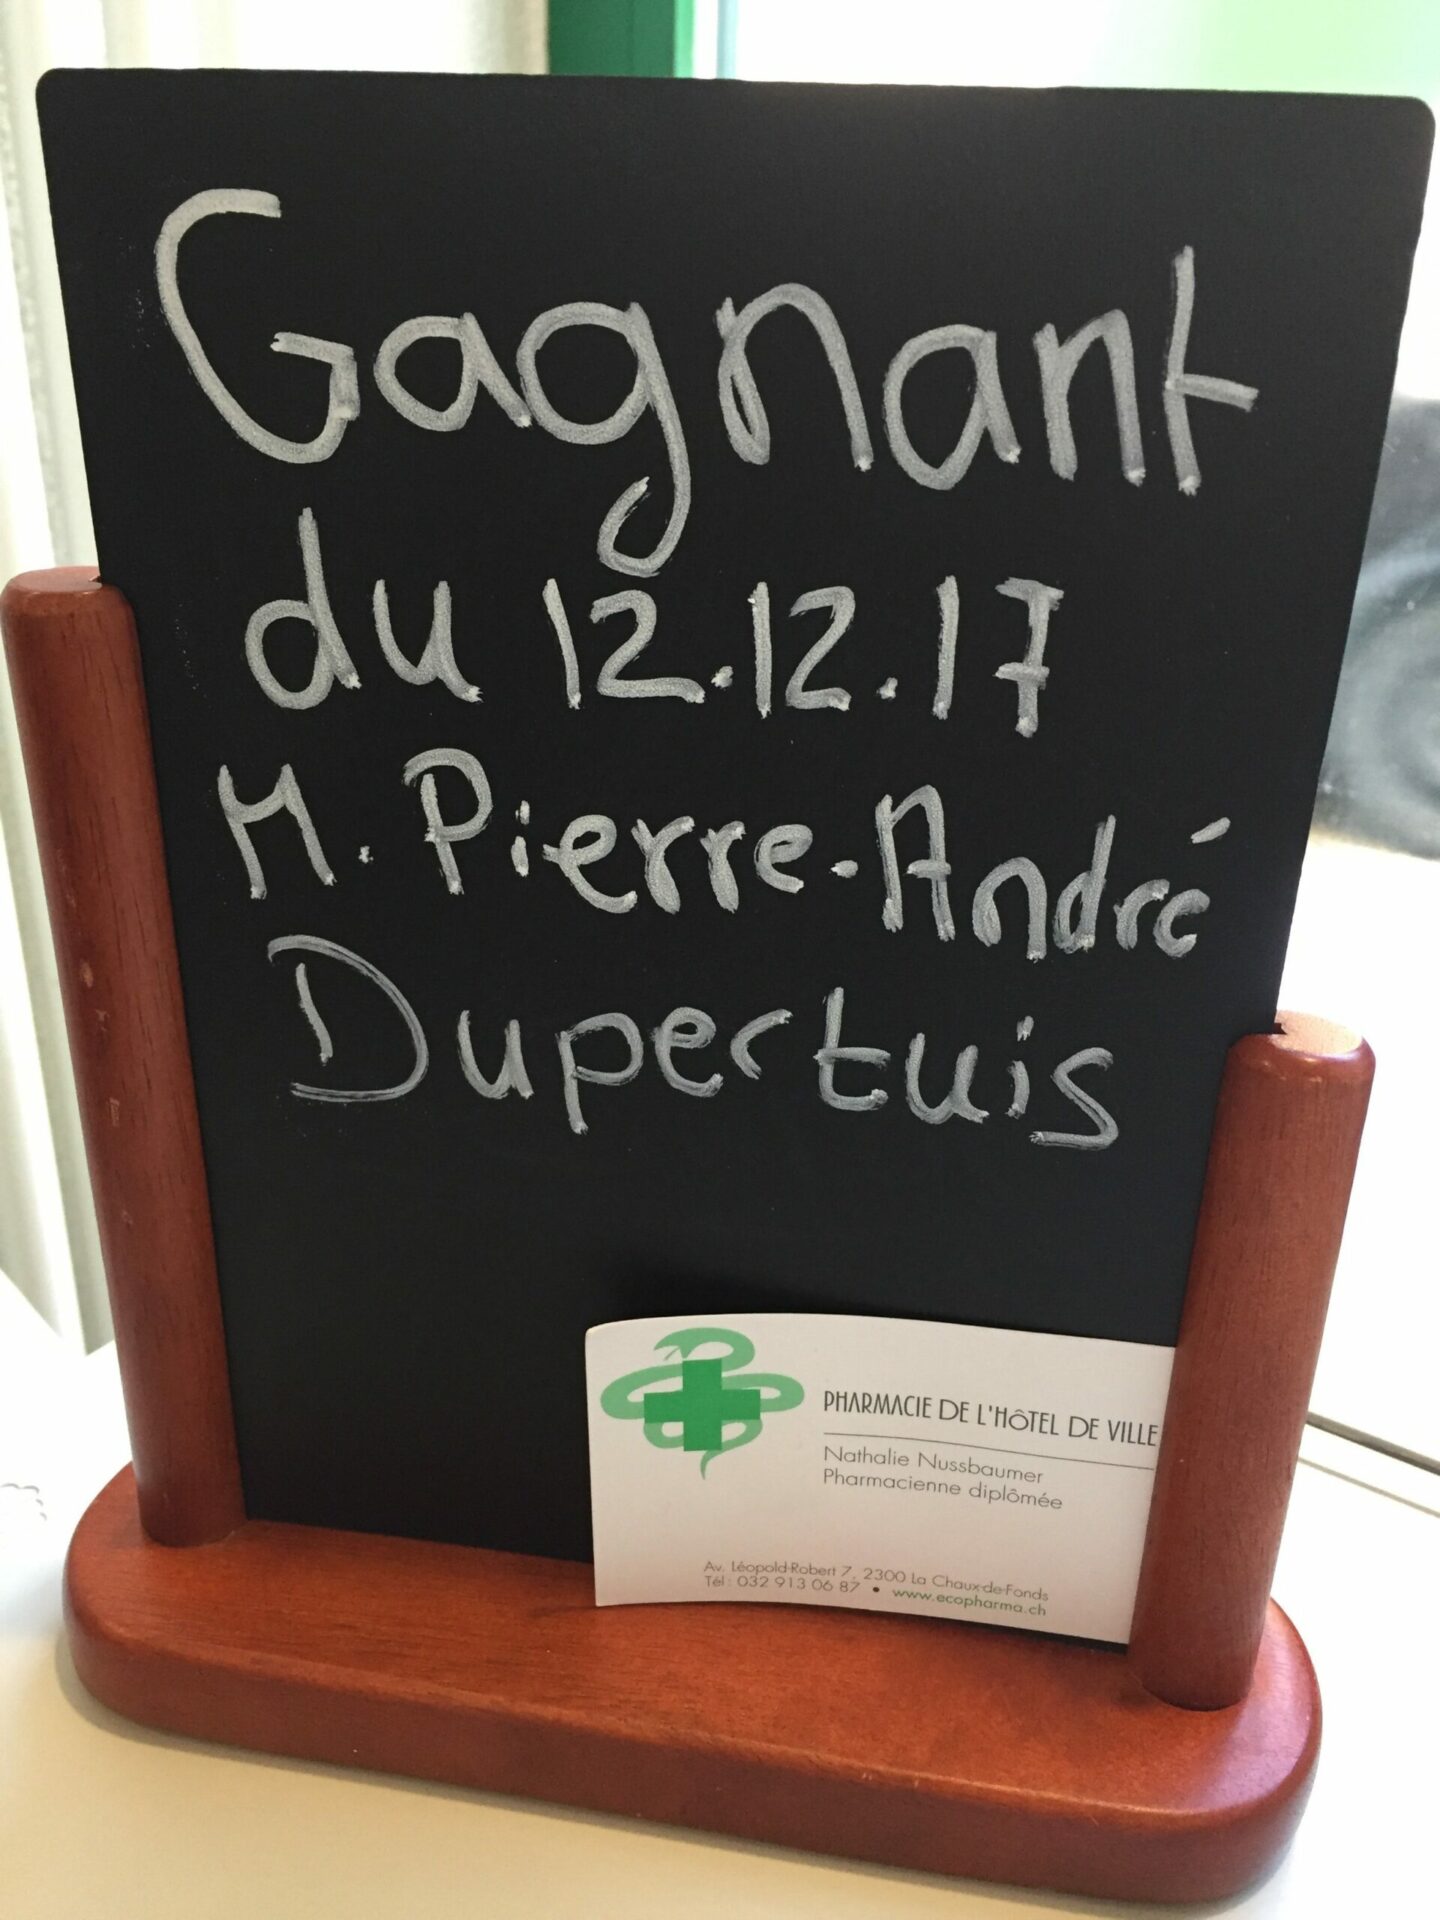 Gagnant
du 12.12.17
M. Pierre-André
Dupertuis
PHARMACIE DE L'HÔTEL DE VILLE
Nathalie Nussbaumer
Pharmacienne diplômée
Av. Léopold-Robert 7, 2300 La Chaux-de-Fonds
Tél : 032 913 06 87 • www.ecopharma.ch